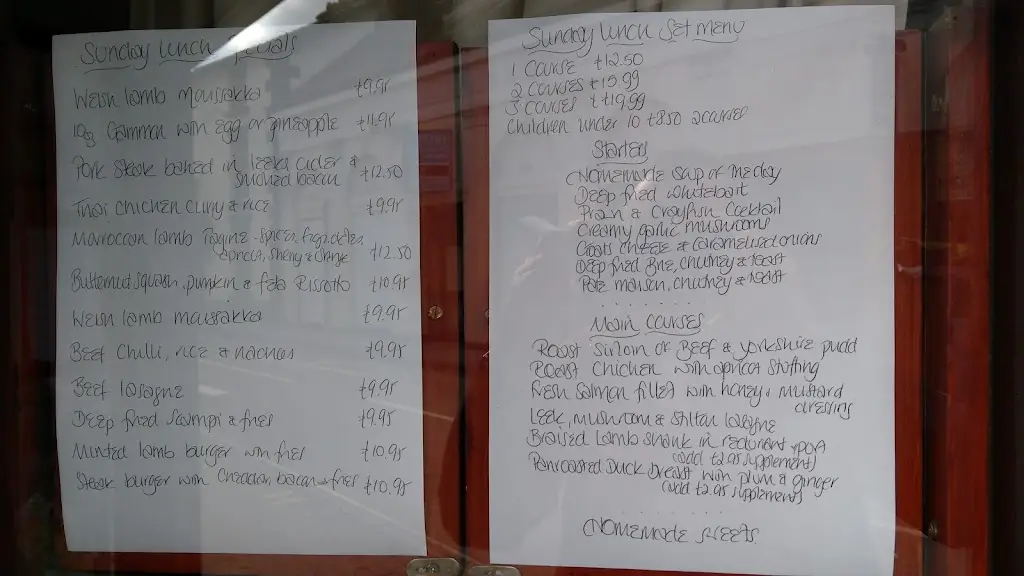 Sunday Lunch Specials
Welsh lamb moussakka £9.95
10oz Gammon with egg or pineapple £11.95
Pork Steak baked in leeks, cider &
smoked bacon £12.50
Thai chicken curry & rice £9.95
Maroccan lamb Tagine - spices, figs, dates,
apricots, sherry & orange £12.50
Butternut squash, pumkin & feta Rissotto £10.95
Welsh lamb maussakka £9.95
Beef Chilli, rice & nachos £9.95
Beef lasagne £9.95
Deep fried Scampi & fries £9.95
Minted lamb burger with fries £10.95
Steak burger with Cheddar, bacon & fries £10.95
Sunday Lunch Set menu
1 Course £12.50
2 Courses £15.99
3 Courses £19.99
Children under 10 £8.50 2 courses
Starters
Homemade soup of the day
Deep fried whitebait
Prawn & Crayfish Cocktail
Creamy garlic mushrooms
Goats cheese & caramelised onions
Deep fried Brie, chutney & toast
Pate maison, chutney & toast
Main Courses
Roast Sirloin of Beef & yorkshire pudd
Roast Chicken with apricot stuffing
Fresh Salmon fillet with honey & mustard
dressing
Leek, mushroom & stilton lasagne
Braised Lamb shank in redcurrant & port
(add £2.95 supplement)
Pan roasted Duck breast with plum & ginger
(add £2.95 supplement)
Homemade sweets